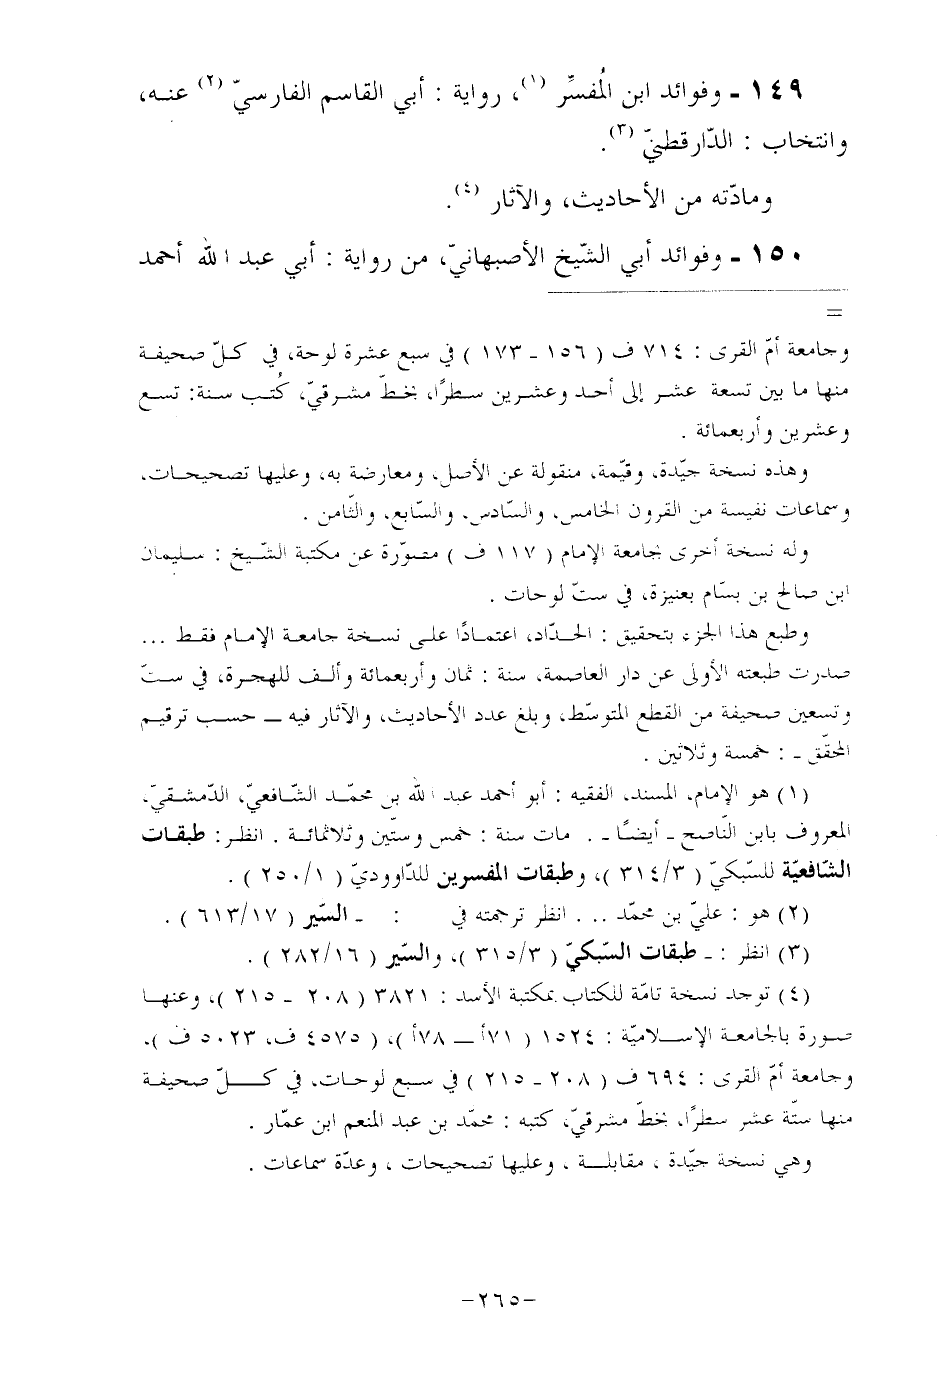 ١٤٩ ـ وفوائد ابن المُفسِّر (١)، رواية : أبي القاسم الفارسيّ (٢) عنـه،
وانتخاب : الدّارقطنيّ (٣).
ومادّته من الأحاديث، والآثار (٤).
١٥٠ ـ وفوائد أبي الشّيخ الأصبهانيّ، من رواية : أبي عبد الله أحمد
=
وجامعة أمّ القرى : ٧١٤ ف ( ١٥٦ ـ ١٧٣ ) في سبع عشرة لوحة، في كـلّ صحيفـة
منها ما بين تسعة عشـر إلى أحد وعشـرين سـطرًا، بخـطّ مشـرقيّ، كُتـب سـنة: تسـع
وعشرين وأربعمائة .
وهذه نسخة جيّدة، وقيّمة، منقولة عن الأصل، ومعارضة به، وعليها تصحيحـات،
وسماعات نفيسة من القرون الخامس، والسّادس، والسّابع، والثّامن .
وله نسخة أخرى بجامعة الإمام ( ١١٧ ف ) مصوّرة عن مكتبة الشّـيخ : سـليمان
ابن صالح بن بسّام بعنيزة، في ستّ لوحات .
وطبع هذا الجزء بتحقيق : الحـدّاد، اعتمـادًا علـى نسـخة جامعـة الإمـام فقـط ...
صدرت طبعته الأولى عن دار العاصمة، سنة : ثمان وأربعمائة وألـف للهجـرة، في سـتّ
وتسعين صحيفة من القطع المتوسّط، وبلغ عدد الأحاديث، والآثار فيه ــ حسـب ترقيـم
المحقّق ـ : خمسة وثلاثين .
(١) هو الإمام، المسند، الفقيه : أبو أحمد عبد الله بن محمّـد الشّـافعيّ، الدّمشـقيّ،
المعروف بابن النّاصح ـ أيضًـا ـ . مات سنة : خمس وستّين وثلاثمائـة . انظـر: طبقـات
الشّافعيّة للسّبكيّ ( ٣١٤/٣ )، وطبقات المفسرين للدّاووديّ ( ٢٥٠/١ ) .
(٢) هو : عليّ بن محمّد ... انظر ترجمته في : ـ السّير ( ٦١٣/١٧ ) .
(٣) انظر : ـ طبقات السّبكيّ ( ٣١٥/٣ )، والسّير ( ٢٨٢/١٦ ) .
(٤) توجد نسخة تامّة للكتاب بمكتبة الأسد : ٣٨٢١ ( ٢٠٨ ـ ٢١٥ )، وعنهـا
صـورة بالجامعـة الإسـلاميّة : ١٥٢٤ ( ٧١أ ــ ٧٨أ )، ( ٤٥٧٥ ف، ٥٠٢٣ ف ).
وجامعة أمّ القرى : ٦٩٤ ف ( ٢٠٨ ـ ٢١٥ ) في سـبع لوحـات، في كـــلّ صحيفـة
منهـا ستّة عشـر سـطرًا، بخطّ مشرقيّ، كتبه : محمّد بن عبد المنعم ابن عمّار .
وهي نسخة جيّدة ، مقابلـة ، وعليها تصحيحات ، وعدّة سماعات .
-٢٦٥-